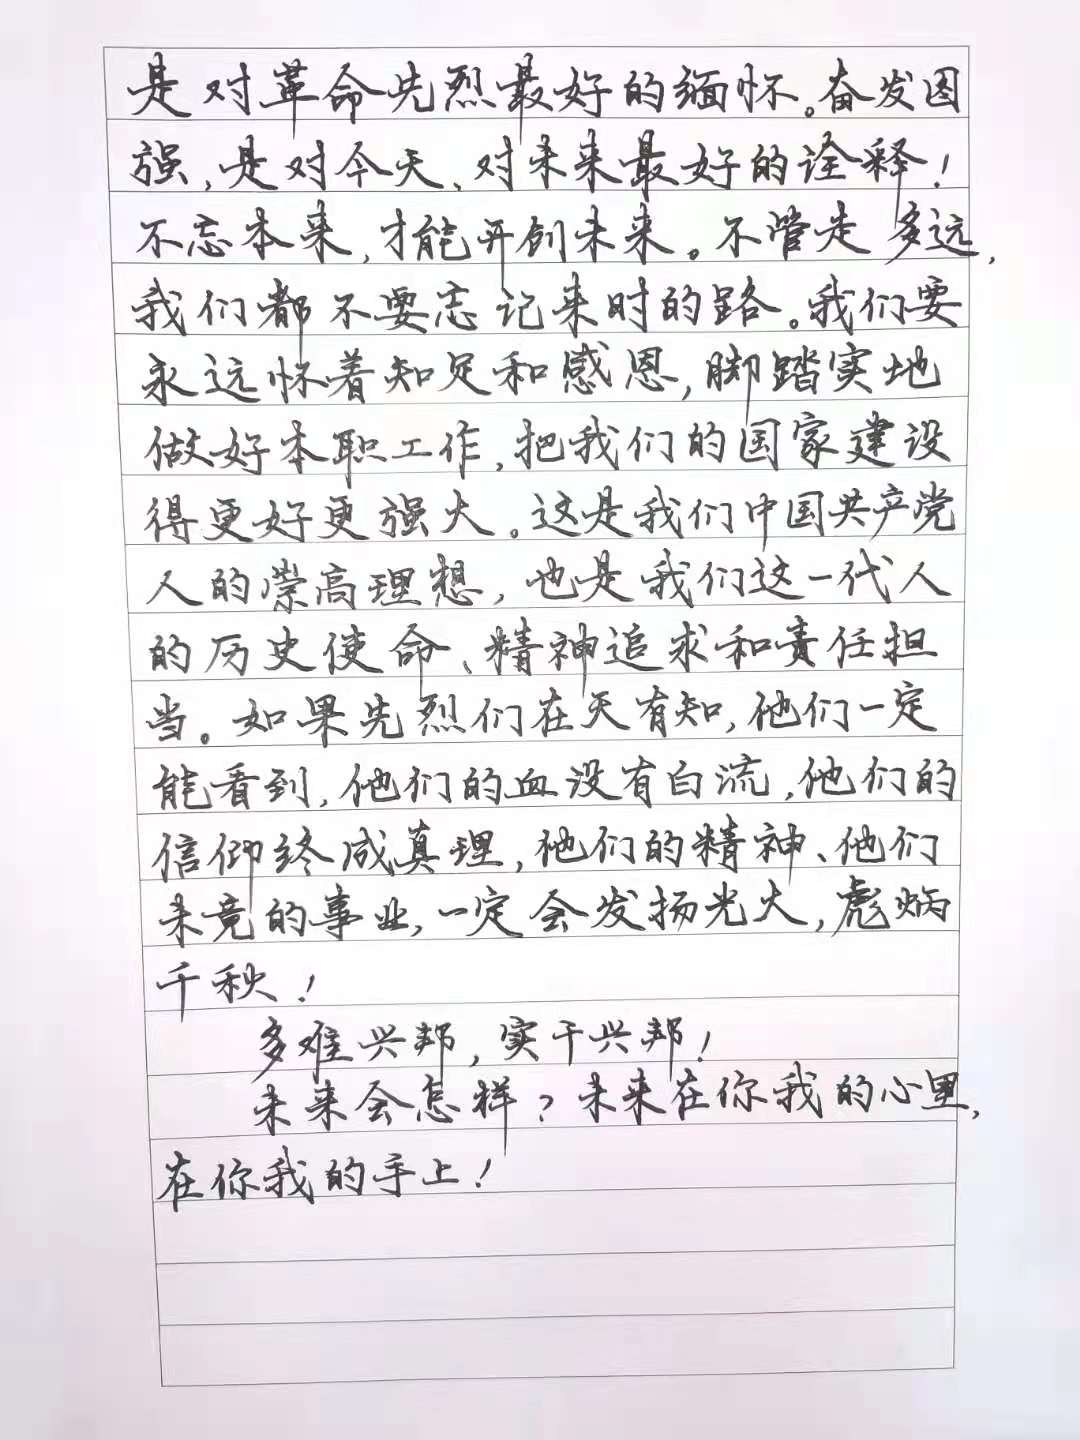 是对革命先烈最好的缅怀。奋发图
强,是对今天、对未来最好的诠释!
不忘本来,才能开创未来。不管走多远,
我们都不要忘记来时的路。我们要
永远怀着知足和感恩,脚踏实地
做好本职工作,把我们的国家建设
得更好更强大。这是我们中国共产党
人的崇高理想,也是我们这一代人
的历史使命、精神追求和责任担
当。如果先烈们在天有知,他们一定
能看到,他们的血没有白流,他们的
信仰终成真理,他们的精神、他们
未竟的事业,一定会发扬光大,彪炳
千秋!
多难兴邦,实干兴邦!
未来会怎样?未来在你我的心里,
在你我的手上!